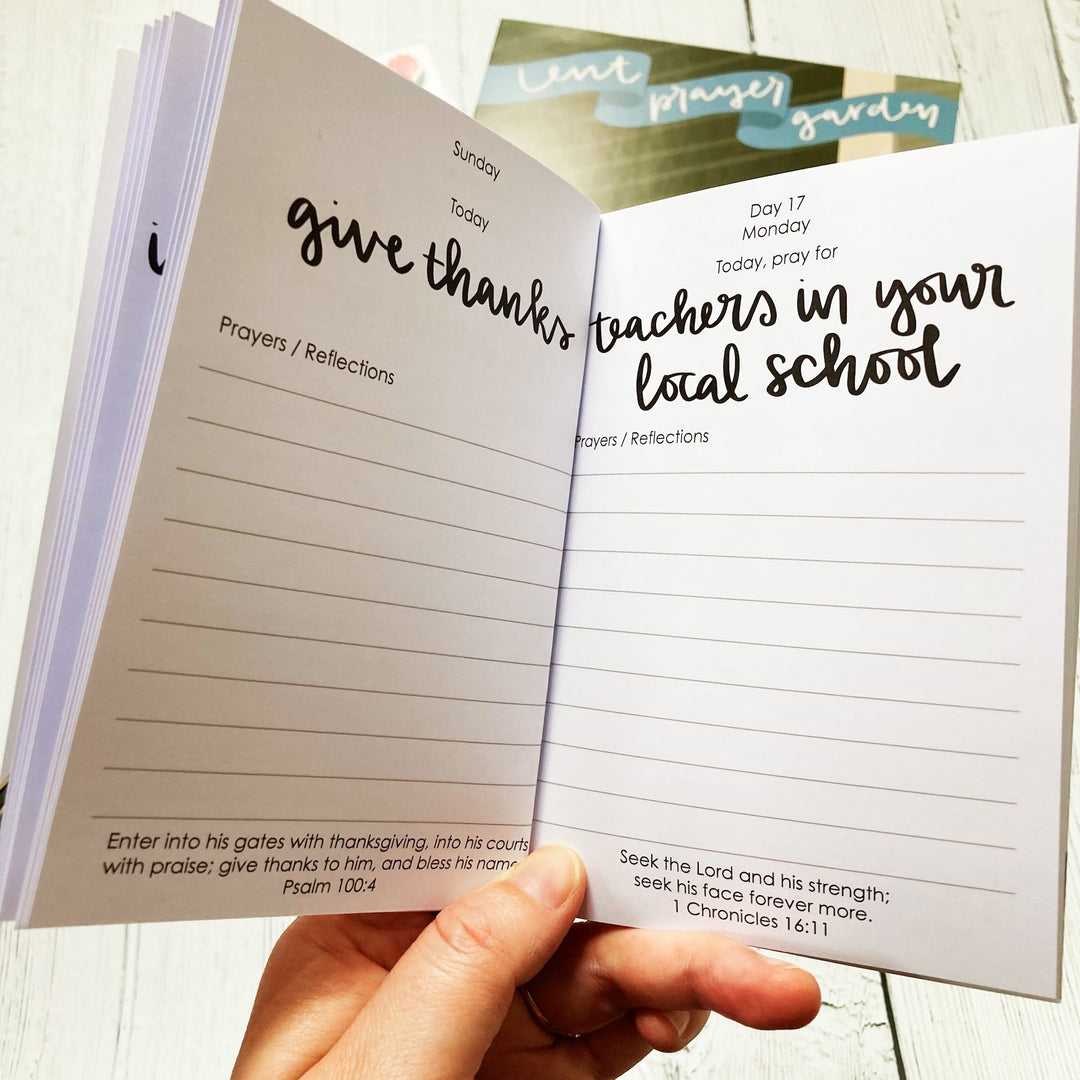 lent prayer garden
i
Sunday
Today
give thanks
Prayers / Reflections
Enter into his gates with thanksgiving, into his courts
with praise; give thanks to him, and bless his name
Psalm 100:4
Day 17
Monday
Today, pray for
teachers in your
local school
Prayers / Reflections
Seek the Lord and his strength;
seek his face forever more.
1 Chronicles 16:11